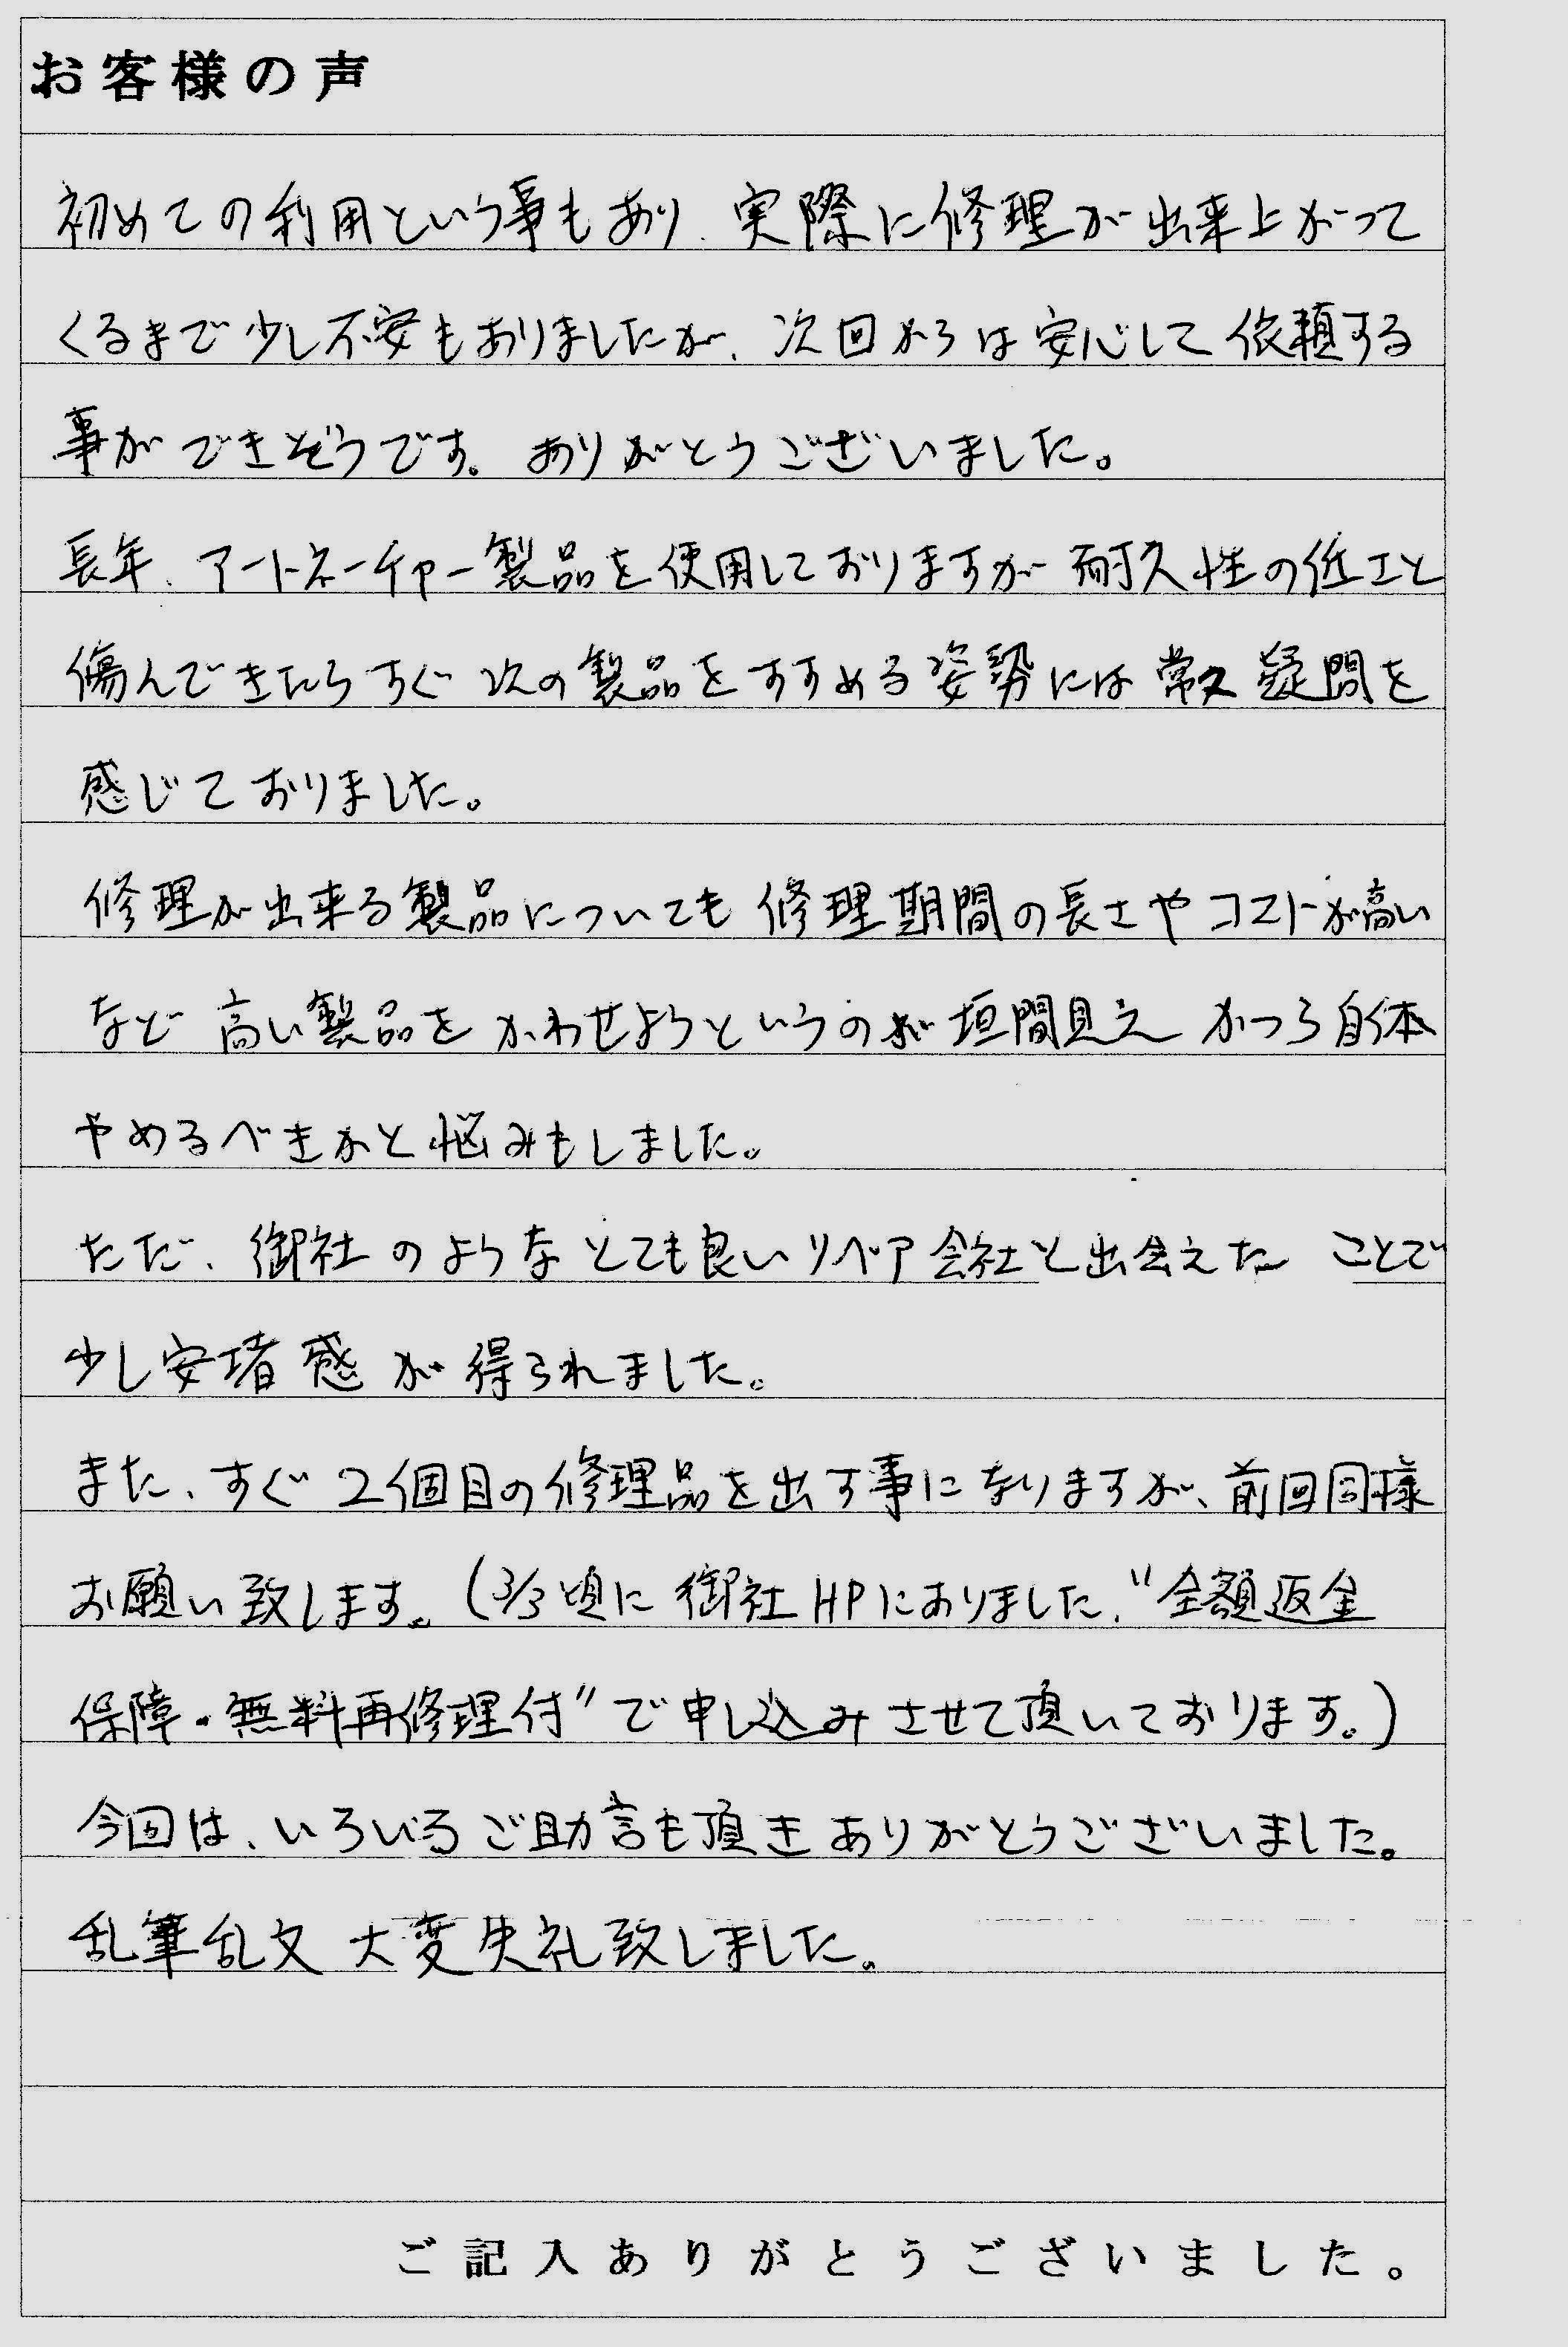 お客様の声
初めての利用という事もあり、実際に修理が出来上がって
くるまで少し不安もありましたが、次回からは安心して依頼する
事ができそうです。ありがとうございました。
長年、アートネーチャー製品を使用しておりますが耐久性の低さと
傷んできたらすぐ次の製品をすすめる姿勢には常々疑問を
感じておりました。
修理が出来る製品についても修理期間の長さやコストが高い
など高い製品をかわせようというのが垣間見えかつら自体
やめるべきかと悩みもしました。
ただ、御社のようなとても良いリペア会社と出会えたことで
少し安堵感が得られました。
また、すぐ2個目の修理品を出す事になりますが、前回同様
お願い致します。(3/3頃に御社HPにありました、“全額返金
保障・無料再修理付”で申し込みさせて頂いております。)
今回は、いろいろご助言も頂きありがとうございました。
乱筆乱文大変失礼致しました。
ご記入ありがとうございました。